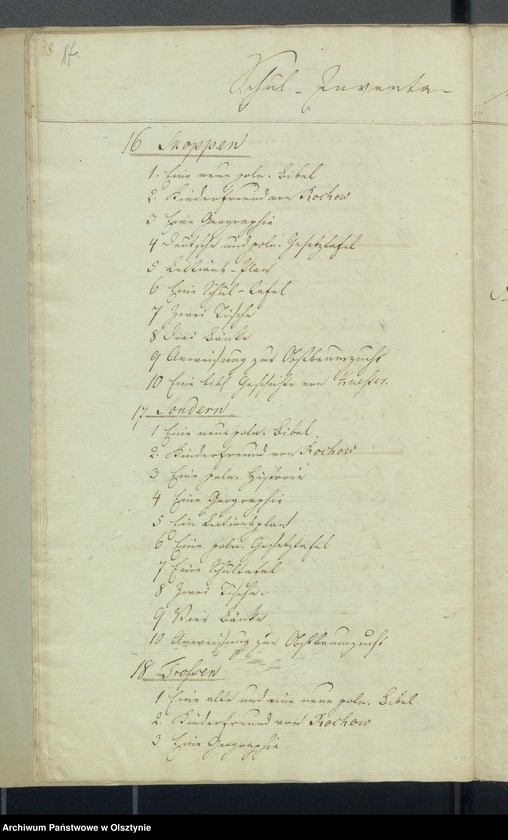 38 17.
Schul-Inventa-
16 Skoppen
1. Eine neue poln. Bibel
2. Kinderfreund von Rochow
3 Eine Geographie
4 Deutsche und poln. Gesetztafel
5 Lections-Plan
6 Eine Schul-tafel
7 Zwei Tische
8 Drei Bänke
9 Anweisung zur Obstbaumzucht
10 Eine bibl. Geschichte von
17 Sondern
1 Eine neue poln. Bibel
2. Kinderfreund von Rochow
3 Eine poln. Historie
4 Eine Geographie
5 Ein Lectionsplan
6 Eine poln. Gesetztafel
7 Eine Schultafel
8 Zwei Tische.
9 Vier Bänke
10 Anweisung zur Obstbaumzucht
18 Trossen
1 Eine alte und eine neue poln. Bibel
2. Kinderfreund von Rochow
3 Eine Geographie
Archiwum Państwowe w Olsztynie